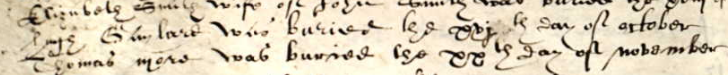 Elizabeth Smith wife of John Smith was buried the
Hugh was buried the xvj th day of october
Thomas more was buried the xx th day of november